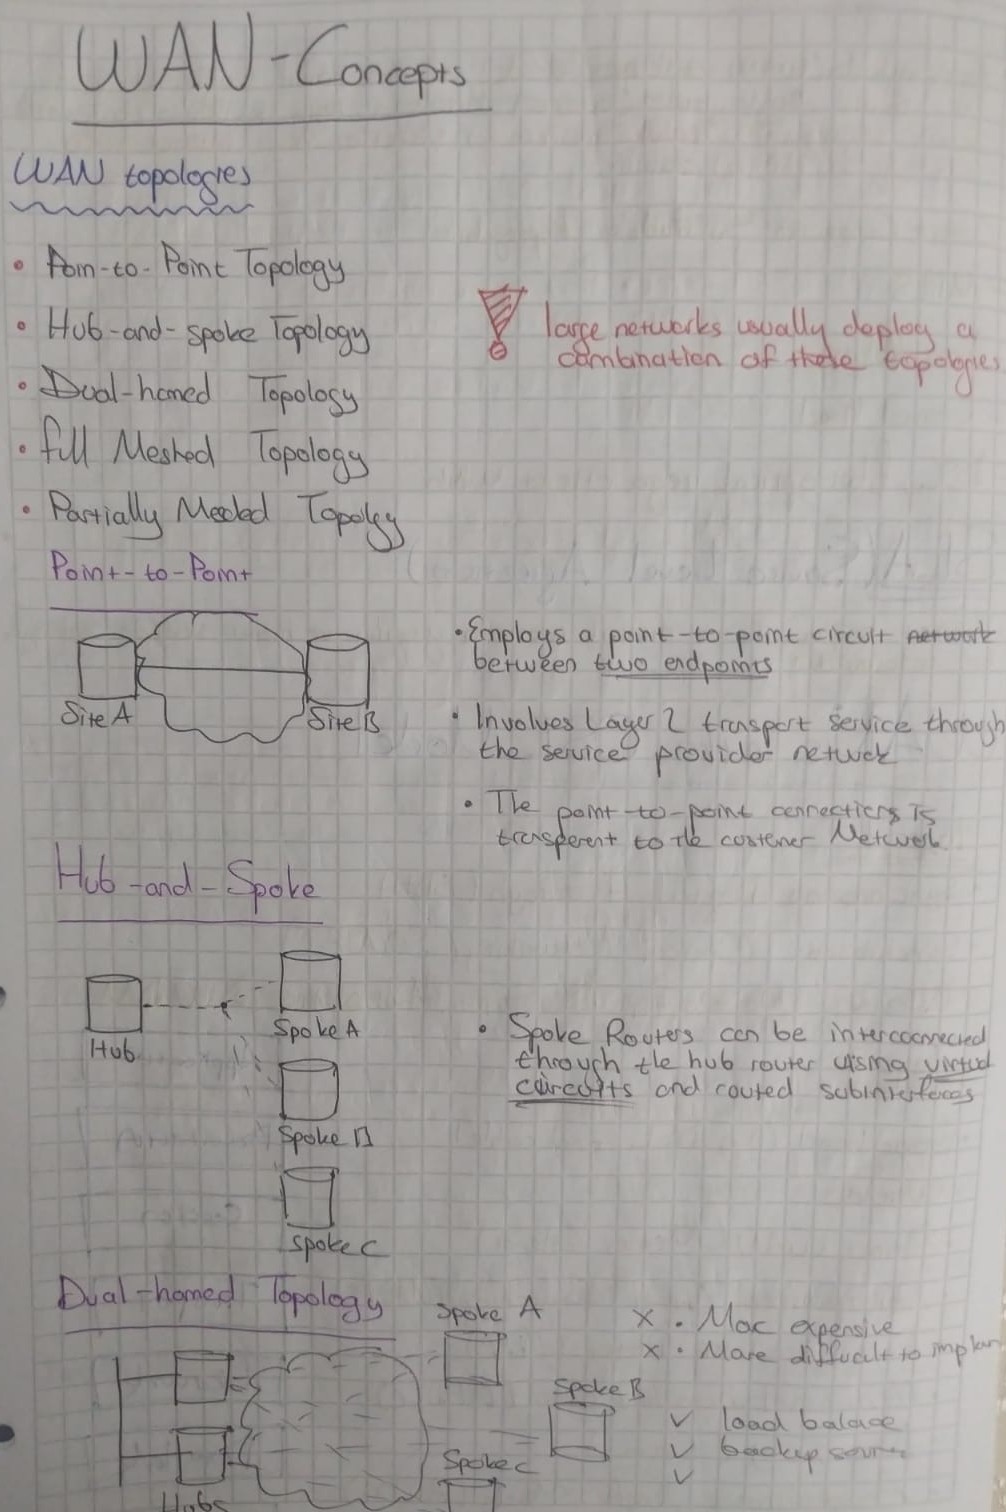 WAN-Concepts
WAN topologies
• Poin-to-Point Topology
• Hub-and-spoke Topology
• Dual-homed Topology
• full Meshed Topology
• Partially Meded Topolgy
large networks usually deploy a
combination of these topologies
Point-to-Point
Site A
Site B
• Employs a point-to-point circuit network
between two endpoints
• Involves Layer 2 transport service through
the service provider netwok
• The point-to-point connections is
transperent to the costomer Network
Hub-and-Spoke
Hub
Spoke A
Spoke B
Spoke C
• Spoke Routers can be interconnected
through the hub router using virtual
circuits and routed subinterfaces
Dual-homed Topology
Hubs
Spoke A
Spoke B
Spoke C
x • Moc expensive
x • More difficult to
✓ load balace
✓ backup
✓